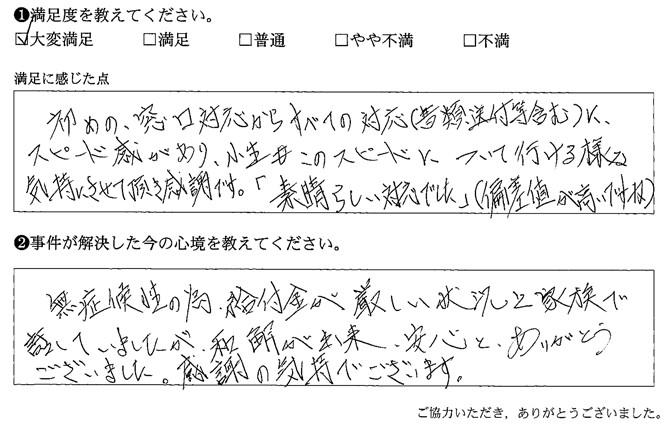 ❶満足度を教えてください。
☑大変満足 □満足 □普通 □やや不満 □不満
満足に感じた点
初めの、窓口対応からすべての対応(書類送付等含む)に、
スピード感があり、小生もこのスピードについて行ける様な
気持にさせて頂き感謝です。「素晴らしい対応でした」(偏差値が高いですね)
❷事件が解決した今の心境を教えてください。
無症候性の為、給付金が厳しい状況と家族で
話していましたが、和解が出来、安心と、ありがとう
ございました。感謝の気持でございます。
ご協力いただき、ありがとうございました。